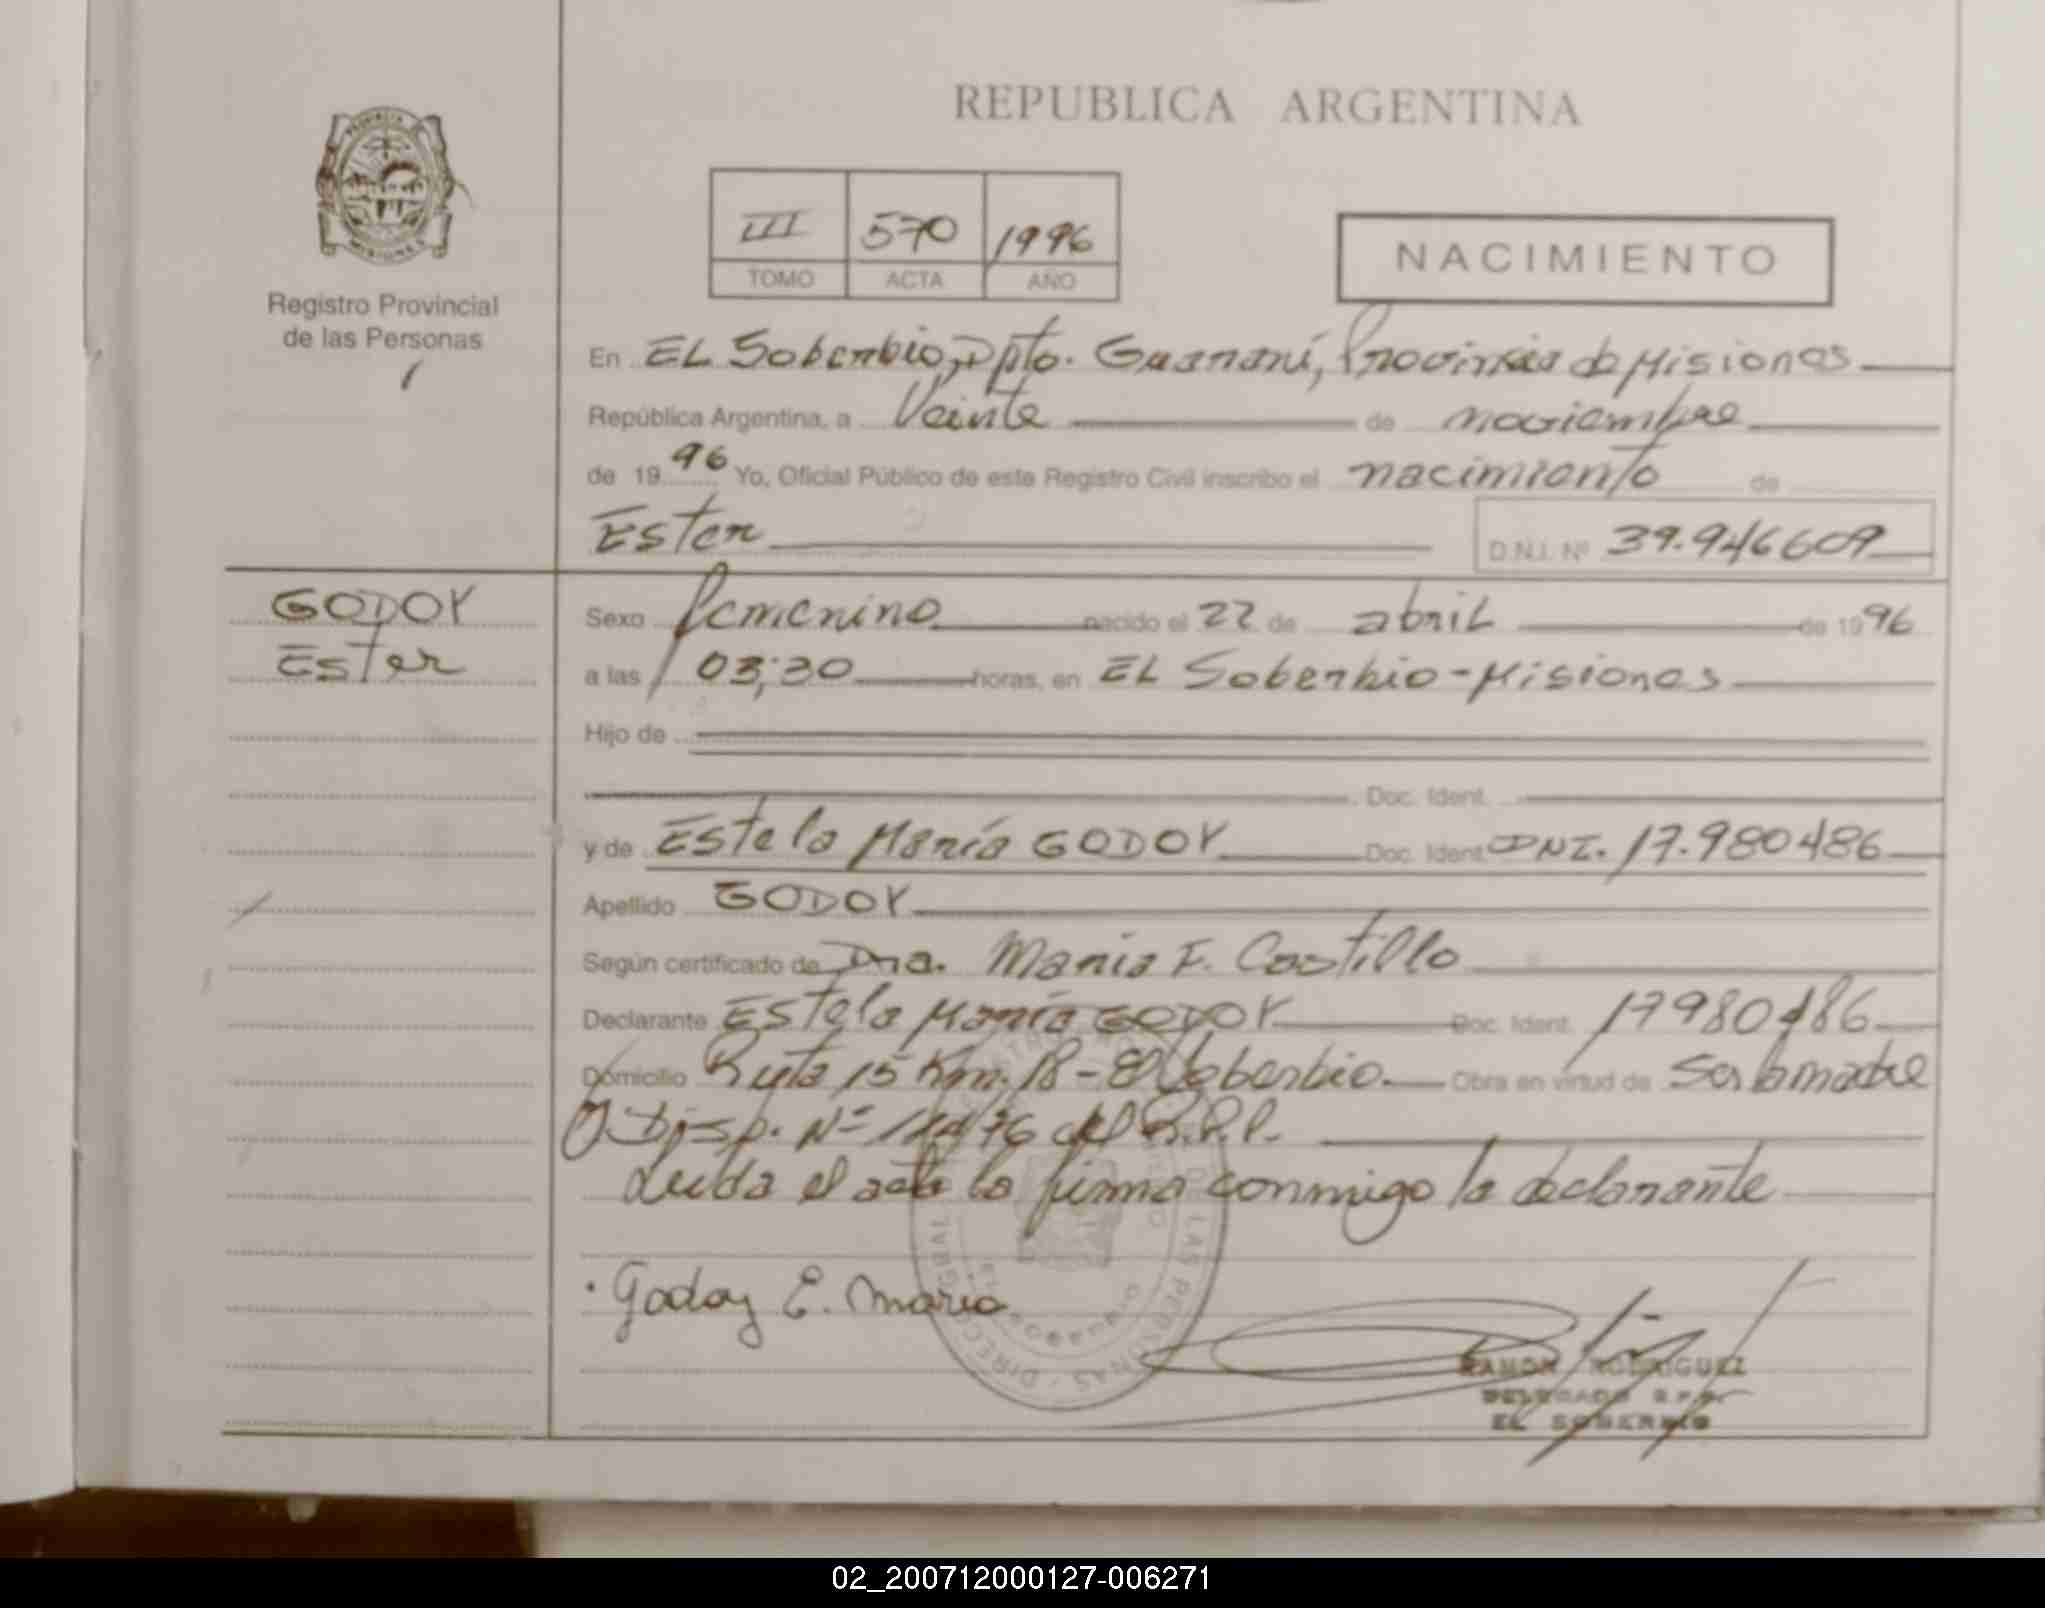 REPUBLICA ARGENTINA
PROVINCIA DE MISIONES
Registro Provincial
de las Personas
III 570 1996
TOMO ACTA AÑO
NACIMIENTO
En EL Soberbio, Dpto. Guaraní, Provincia de Misiones
República Argentina, a Veinte de noviembre
de 1996 Yo, Oficial Público de este Registro Civil inscribo el nacimiento de
Ester D.N.I. Nº 39.946609
GODOY
Ester
Sexo femenino nacido el 22 de abril de 1996
a las 03;30 horas, en EL Soberbio-Misiones
Hijo de
Doc. Ident.
y de Estela María GODOY Doc. Ident. DNI. 17.980486
Apellido GODOY
Según certificado de Dra. Maria F. Castillo
Declarante Estela María GODOY Doc. Ident. 17980486
Domicilio Ruta 15 Km. 18-El Soberbio. Obra en virtud de Ser la madre
Disp. Nº del R.P.P.
Leida el acta la firma conmigo la declarante
Godoy E. Maria
RAMON RODRIGUEZ
DELEGADO R.P.P.
EL SOBERBIO
02_200712000127-006271